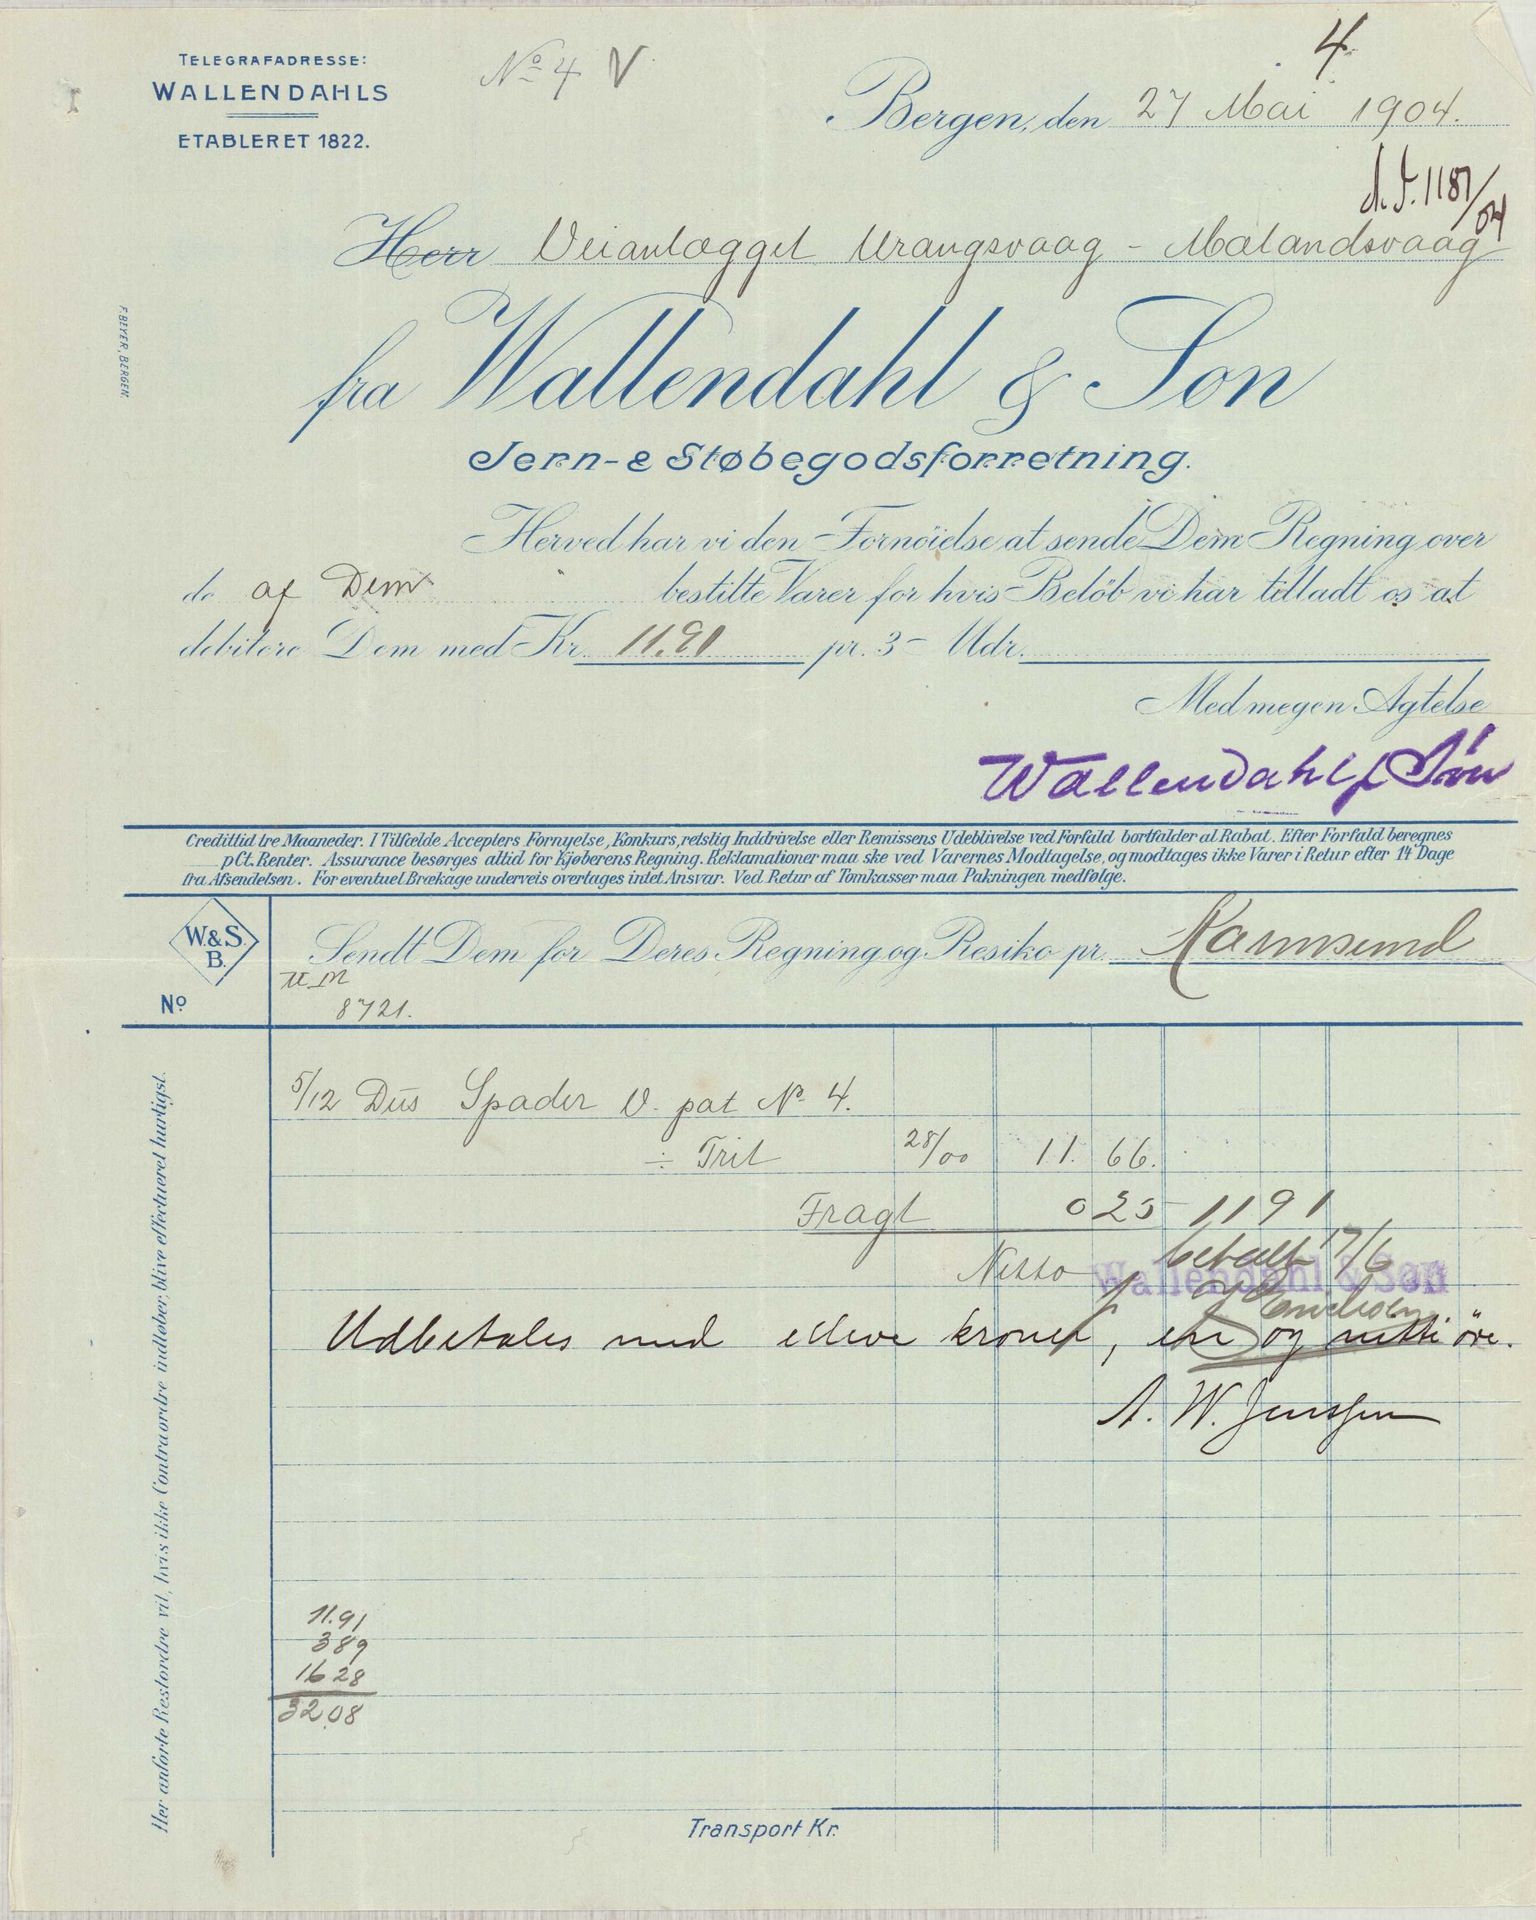 4
TELEGRAFADRESSE:
WALLENDAHLS
ETABLERET 1822.
No 4 V
Bergen, den 27 Mai 1904.
d. J. 1187/04
Herr Veianlægget Urangsvaag - Mælandsvaag
F. BEYER, BERGEN.
fra Wallendahl & Søn
Jern- & Støbegodsforretning.
Herved har vi den Fornöielse at sende Dem Regning over
de af Dem bestilte Varer for hvis Belöb vi har tilladt os at
debitere Dem med Kr. 11.91 pr. 3 - Mdr.
Med megen Agtelse
Wallendahl & Søn
Credittid tre Maaneder. I Tilfælde Accepters Fornyelse, Konkurs, retslig Inddrivelse eller Remissens Udeblivelse ved Forfald bortfalder al Rabat. Efter Forfald beregnes
pCt. Renter. Assurance besørges altid for Kjøberens Regning. Reklamationer maa ske ved Varernes Modtagelse, og modtages ikke Varer i Retur efter 14 Dage
fra Afsendelsen. For eventuel Brækage underveis overtages intet Ansvar. Ved Retur af Tomkasser maa Pakningen medfølge.
W. & S.
B.
No
Sendt Dem for Deres Regning og Resiko pr. Karmsund
8721.
5/12 Dus Spader V. pat No 4.
÷ Trit 28/00 11. 66.
Fragt 0 25 11 91
Netto betalt 17/6
Wallendahl & Søn
Udbetales med elleve kroner, en og nitti øre.
A. W. Jenssen
11.91
3 89
16 28
32.08
Transport Kr.
Her anførte Restordre vil, hvis ikke Contraordre indløber, blive effectueret hurtigst.